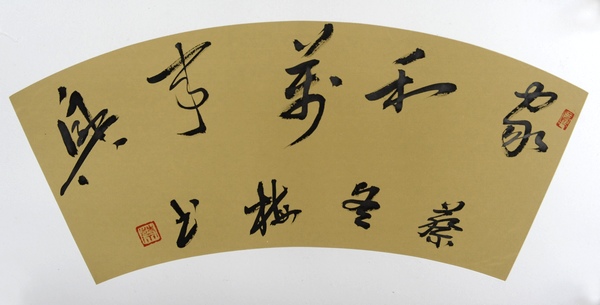 家和萬事興
蔡冬梅书